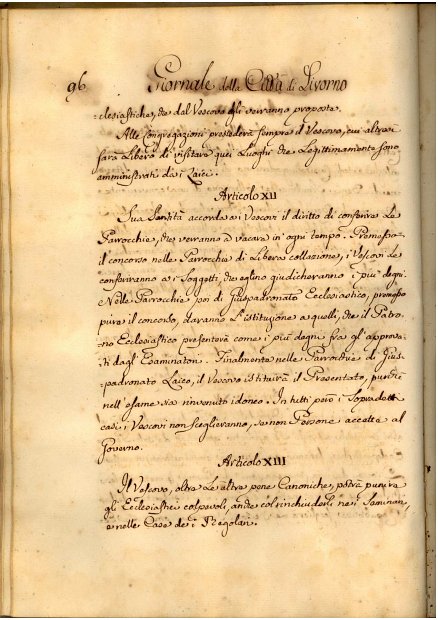 96 Giornale della Città di Livorno
clesiastiche, che dal Vescovo gli verranno proposte.
Alle Congregazioni presiederà sempre il Vescovo, cui altresì
sarà Libero di visitare quei Luoghi che Legittimamente sono
amministrati dai Laici.
Articolo XII
Sua Santità accorda ai Vescovi il diritto di conferire Le
Parrocchie, che verranno a vacare in ogni tempo. Premesso
il concorso nelle Parrocchie di Libera collazione, i Vescovi Le
conferiranno a' Soggetti, che eglino giudicheranno i più degni.
Nelle Parrocchie poi di Giuspadronato Ecclesiastico, premesso
pure il concorso, daranno L'istituzione a quelli, che il Patro-
no Ecclesiastico presenterà come i più degni fra gli approva-
ti dagl'Esaminatori. Finalmente nelle Parrocchie di Gius-
padronato Laico, il Vescovo istituirà il Presentato, purchè
nell'esame sia rinvenuto idoneo. In tutti però i Sopradetti
casi i Vescovi non sceglieranno, se non Persone accette al
Governo.
Articolo XIII
Il Vescovo, oltre Le altre pene Canoniche, potrà punire
gli Ecclesiastici colpevoli, anche col rinchiuderli nei Seminari,
e nelle Case dei Regolari.